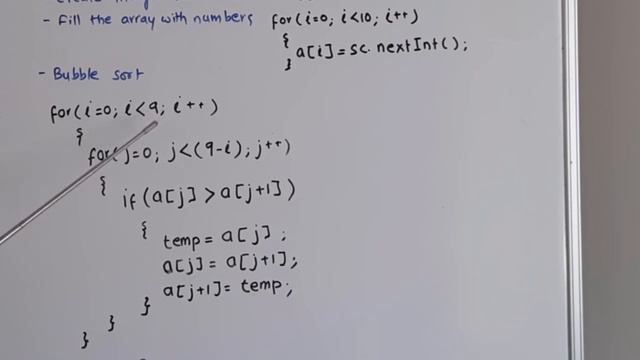 - Fill the array with numbers for(i=0; i<10; i++)
{
a[i]=sc.nextInt();
}
- Bubble sort
for(i=0; i<9; i++)
{
for(j=0; j<(9-i); j++)
{
if(a[j]>a[j+1])
{
temp=a[j];
a[j]=a[j+1];
a[j+1]=temp;
}
}
}